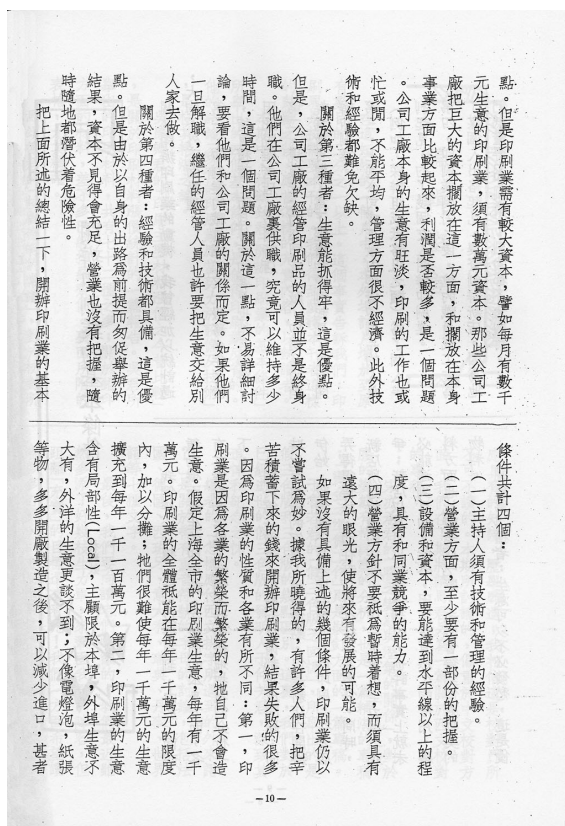 點。但是印刷業需有較大資本，譬如每月有數千
元生意的印刷業，須有數萬元資本。那些公司工
廠把巨大的資本擱放在這一方面，和擱放在本身
事業方面比較起來，利潤是否較多，是一個問題
。公司工廠本身的生意有旺淡，印刷的工作也或
忙或閒，不能平均，管理方面很不經濟。此外技
術和經驗都難免欠缺。
關於第三種者：生意能抓得牢，這是優點。
但是，公司工廠的經管印刷品的人員並不是終身
職。他們在公司工廠裏供職，究竟可以維持多少
時間，這是一個問題。關於這一點，不易詳細討
論，要看他們和公司工廠的關係而定。如果他們
一旦解職，繼任的經管人員也許要把生意交給別
人家去做。
關於第四種者：經驗和技術都具備，這是優
點。但是由於以自身的出路爲前提而匆促舉辦的
結果，資本不見得會充足，營業也沒有把握，隨
時隨地都潛伏着危險性。
把上面所述的總結一下，開辦印刷業的基本
條件共計四個：
(一)主持人須有技術和管理的經驗。
(二)營業方面，至少要有一部份的把握。
(三)設備和資本，要能達到水平線以上的程
度，具有和同業競爭的能力。
(四)營業方針不要祇爲暫時着想，而須具有
遠大的眼光，使將來有發展的可能。
如果沒有具備上述的幾個條件，印刷業仍以
不嘗試爲妙。據我所曉得的，有許多人們，把辛
苦積蓄下來的錢來開辦印刷業，結果失敗的很多
。因爲印刷業的性質和各業有所不同：第一，印
刷業是因爲各業的繁榮而繁榮的，牠自己不會造
生意。假定上海全市的印刷業生意，每年有一千
萬元。印刷業的全體祇能在每年一千萬元的限度
內，加以分攤；牠們很難使每年一千萬元的生意
擴充到每年一千一百萬元。第二，印刷業的生意
含有局部性(Local)，主顧限於本埠，外埠生意不
大有，外洋的生意更談不到；不像電燈泡，紙張
等物，多多開廠製造之後，可以減少進口，甚者
—10—